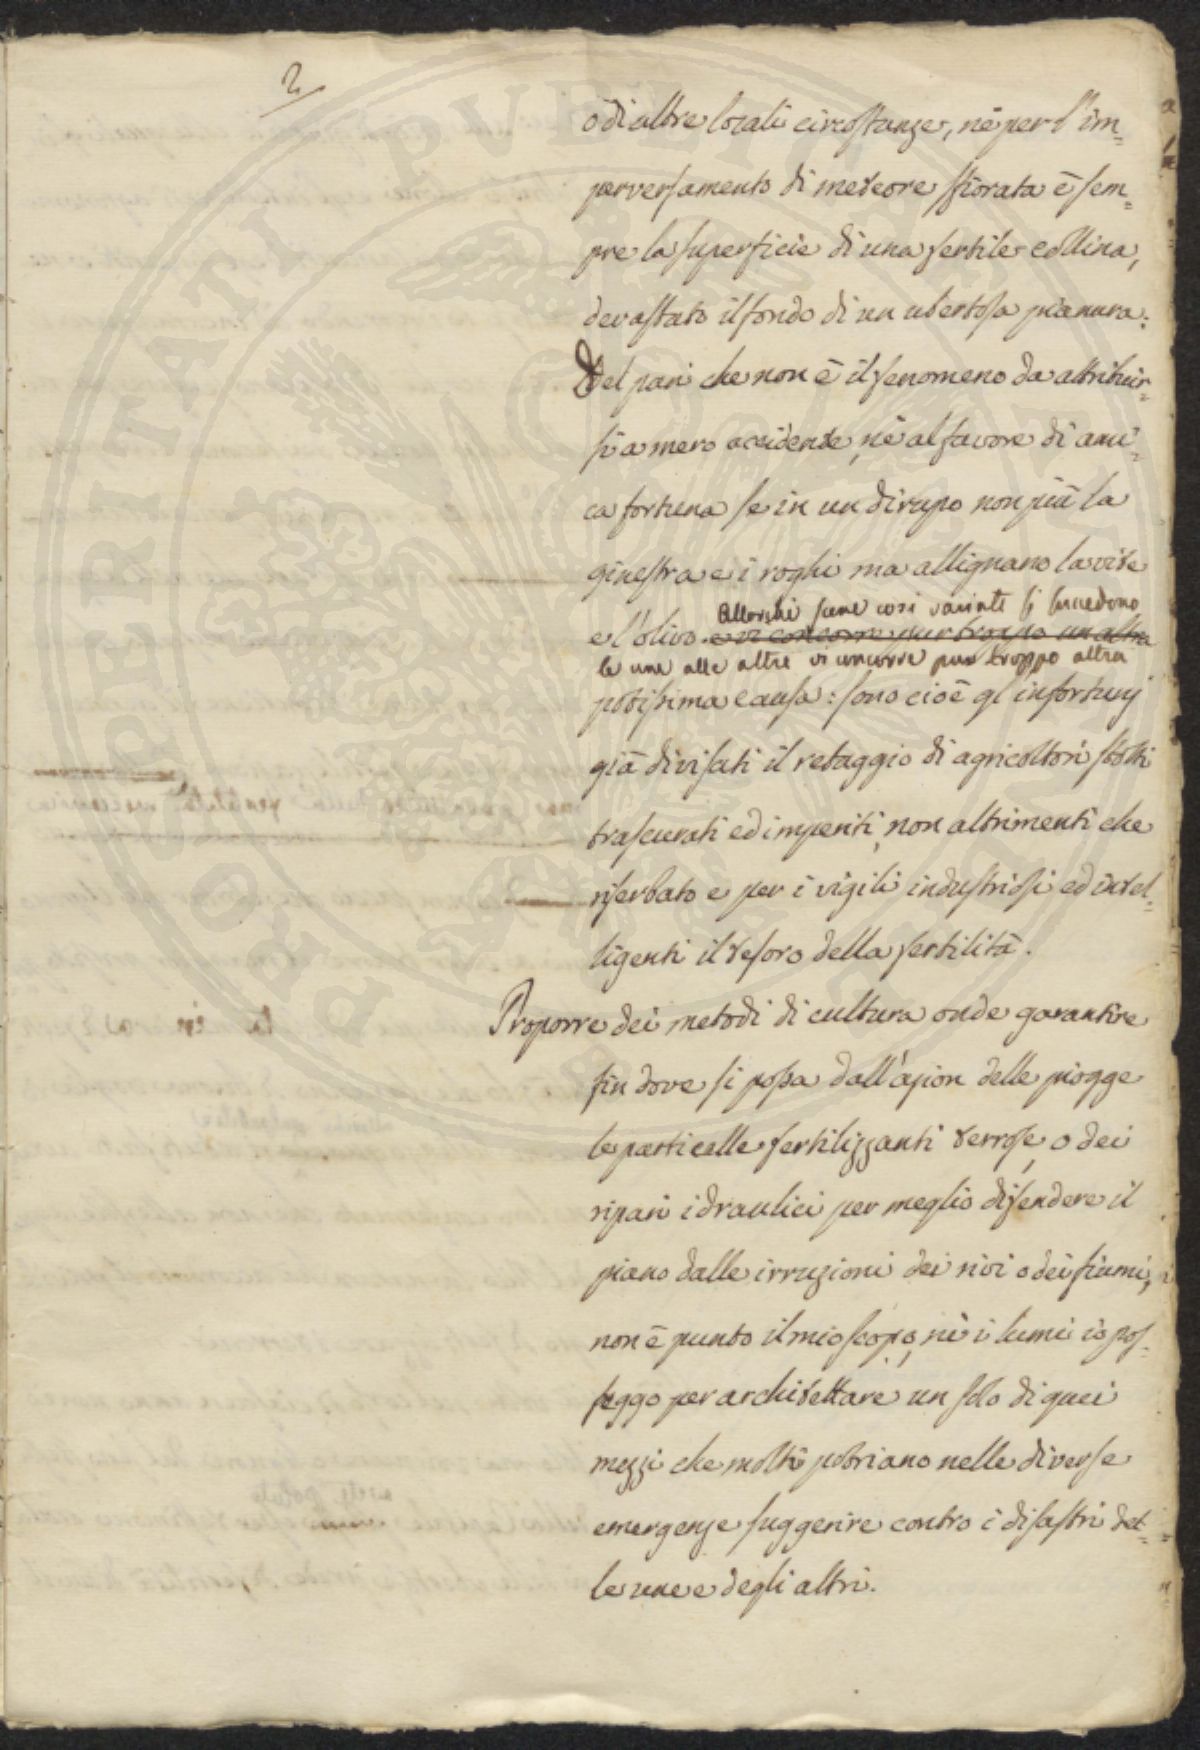 2
o di altre locali circostanze, nè per l'im=
perversamento di meteore sfiorata è sem=
pre la superficie di una fertile collina,
devastato il fondo di un ubertosa pianura.
Del pari che non è il fenomeno da attribuir=
si a mero accidente, nè al favore di ami=
ca fortuna se in un dirupo non più la
ginestra e i roghi ma allignano la vite
e l'olivo. e vi concorre pur troppo un altra
Allorchè scene così varianti si succedono
le une alle altre vi concorre pur troppo altra
potissima causa: sono cioè gl'infortunj
già divisati il retaggio di agricoltori stolti
trascurati ed imperiti, non altrimenti che
riserbato e per i vigili industriosi ed intel=
ligenti il tesoro della fertilità.
Proporre dei metodi di cultura onde garantire
fin dove si possa dall'azion delle piogge
le particelle fertilizzanti terrose, o dei
ripari idraulici per meglio difendere il
piano dalle irruzioni dei rivi o dei fiumi,
non è punto il mio scopo, nè i lumi io pos=
seggo per architettare un solo di quei
mezzi che molti potriano nelle diverse
emergenze suggerire contro i disastri del=
le une e degli altri.
PROSPERITATI PVBLICAE